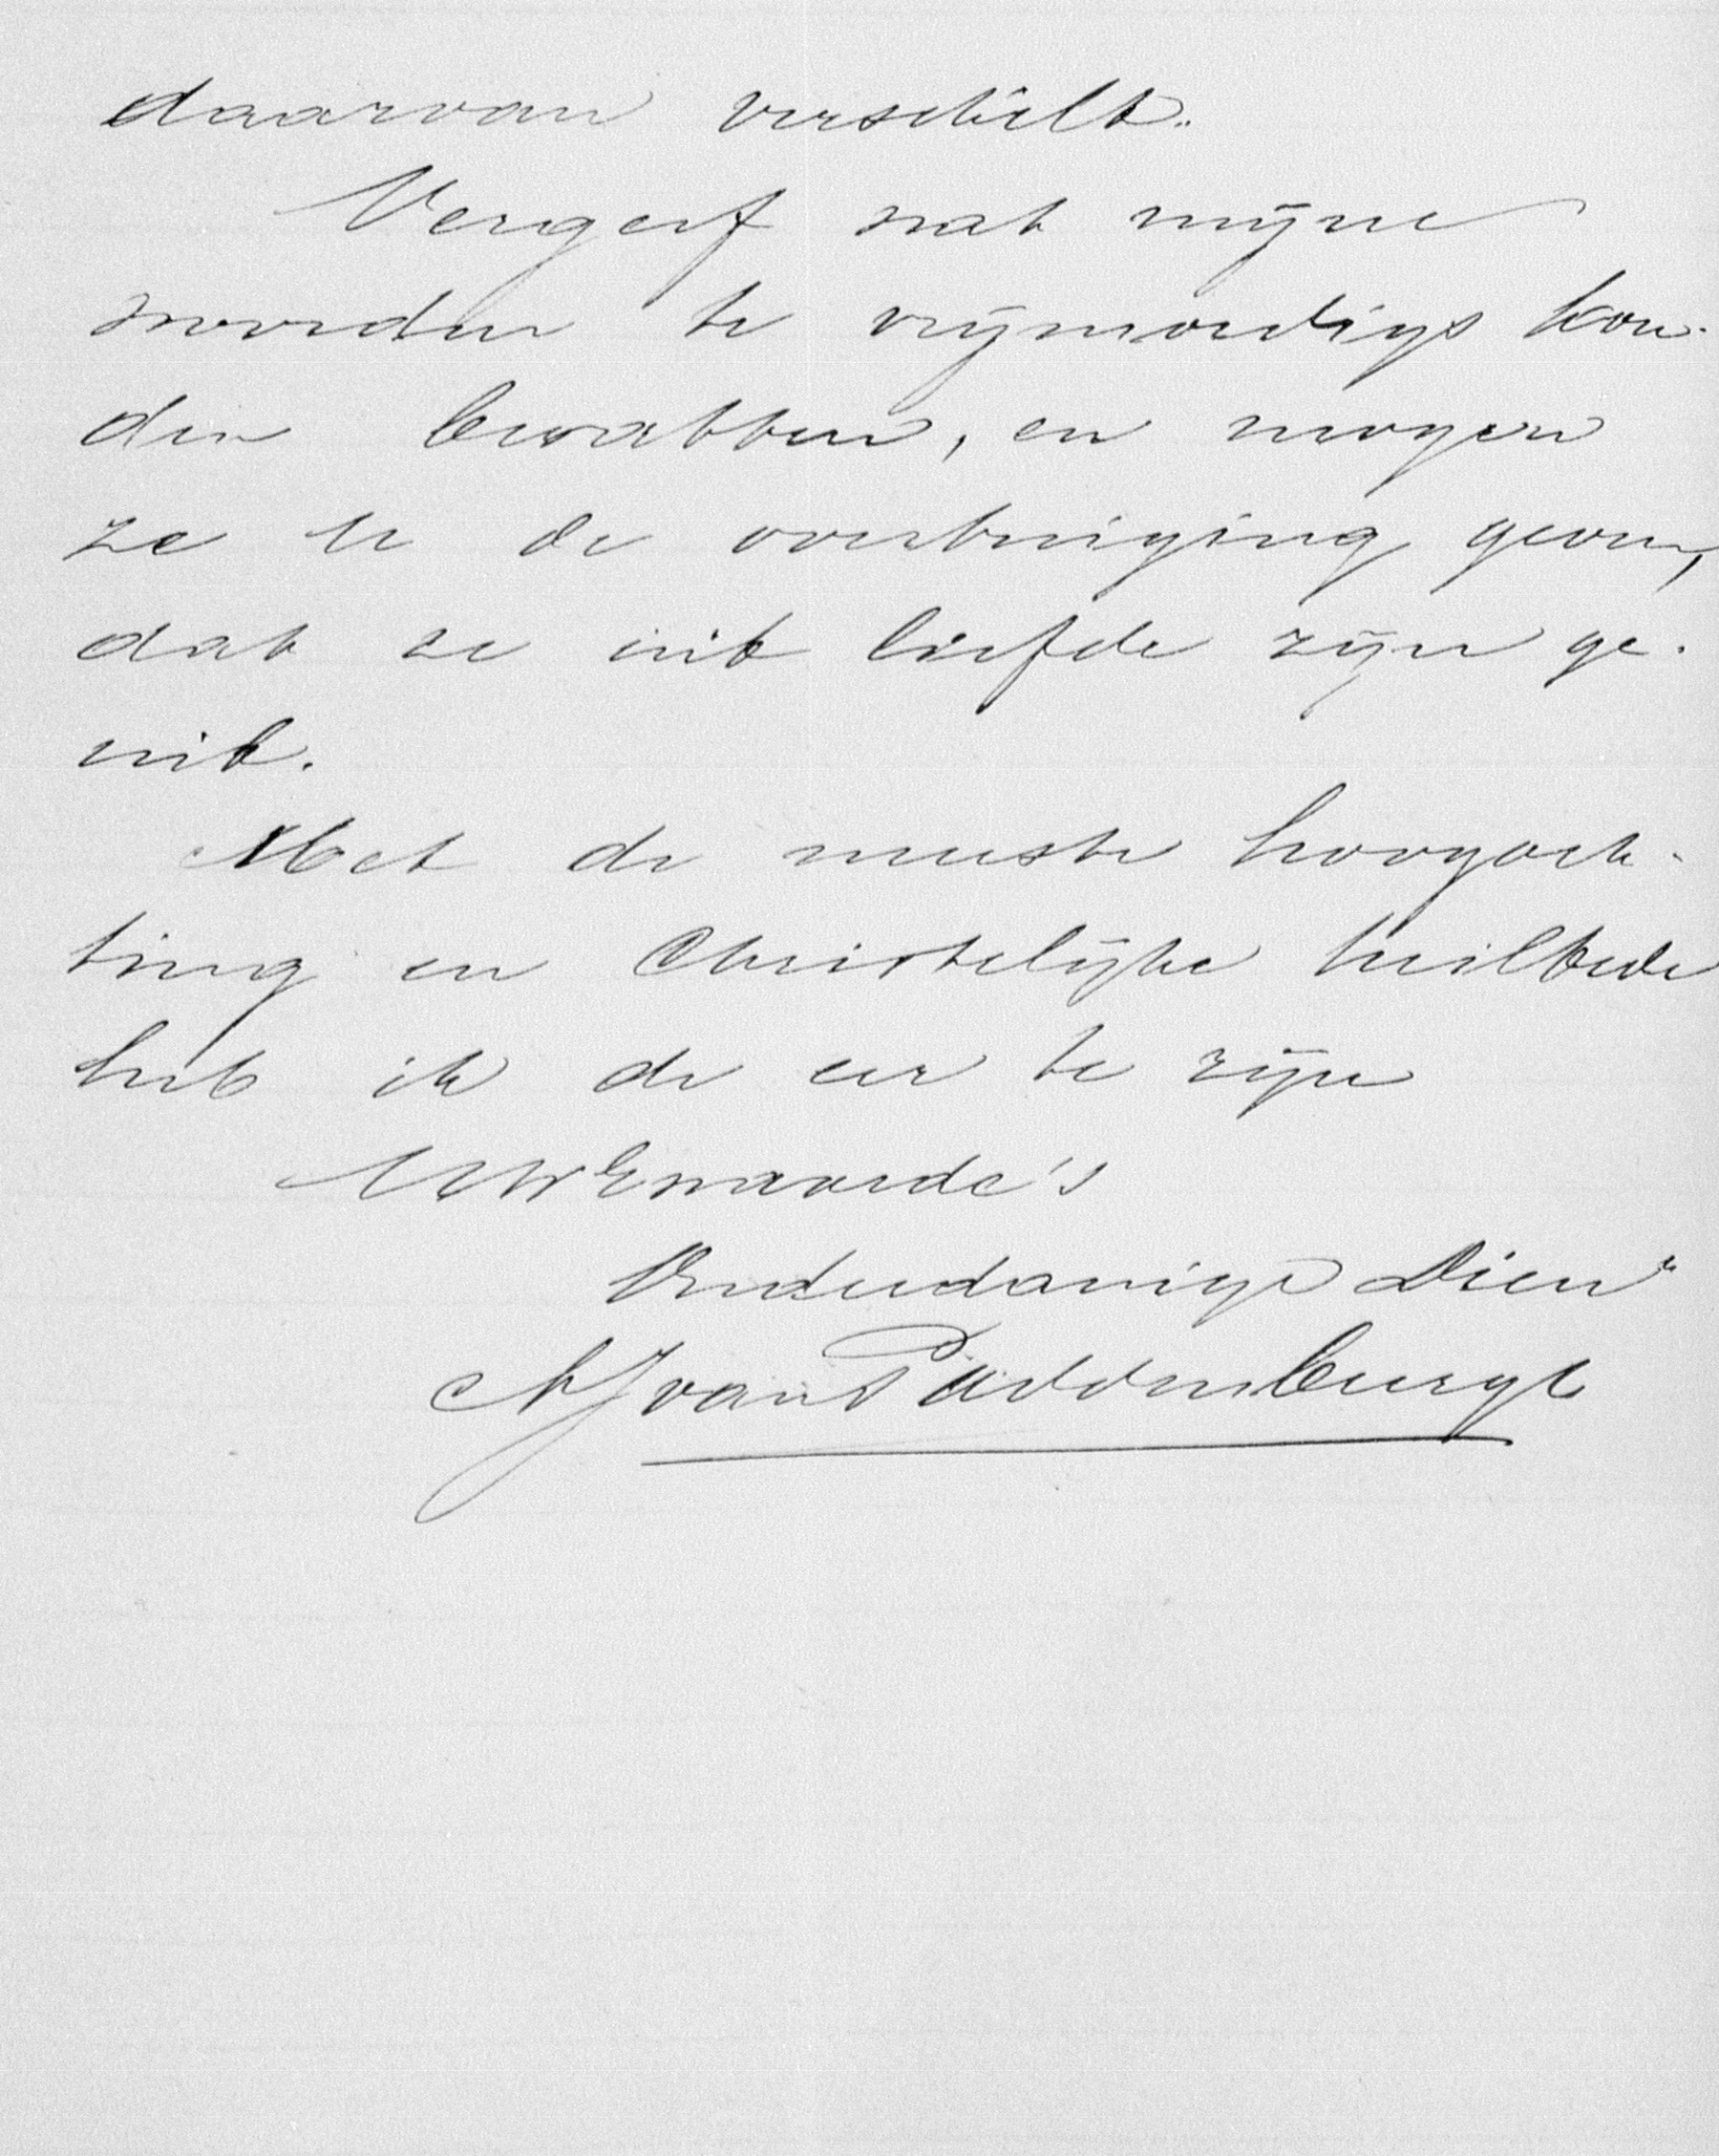 daarvan verschilt.
Vergeef wat mijne
woorden te vrijmoedigs kon-
den bevatten, en mogen
ze U de overtuiging geven,
dat ze uit liefde zijn ge-
uit.
Met de meeste hoogach-
ting en Christelijke heilbede
heb ik de eer te zijn
UWEwaarde's
Onderdanige Dienr
AJ van Paddenburgh